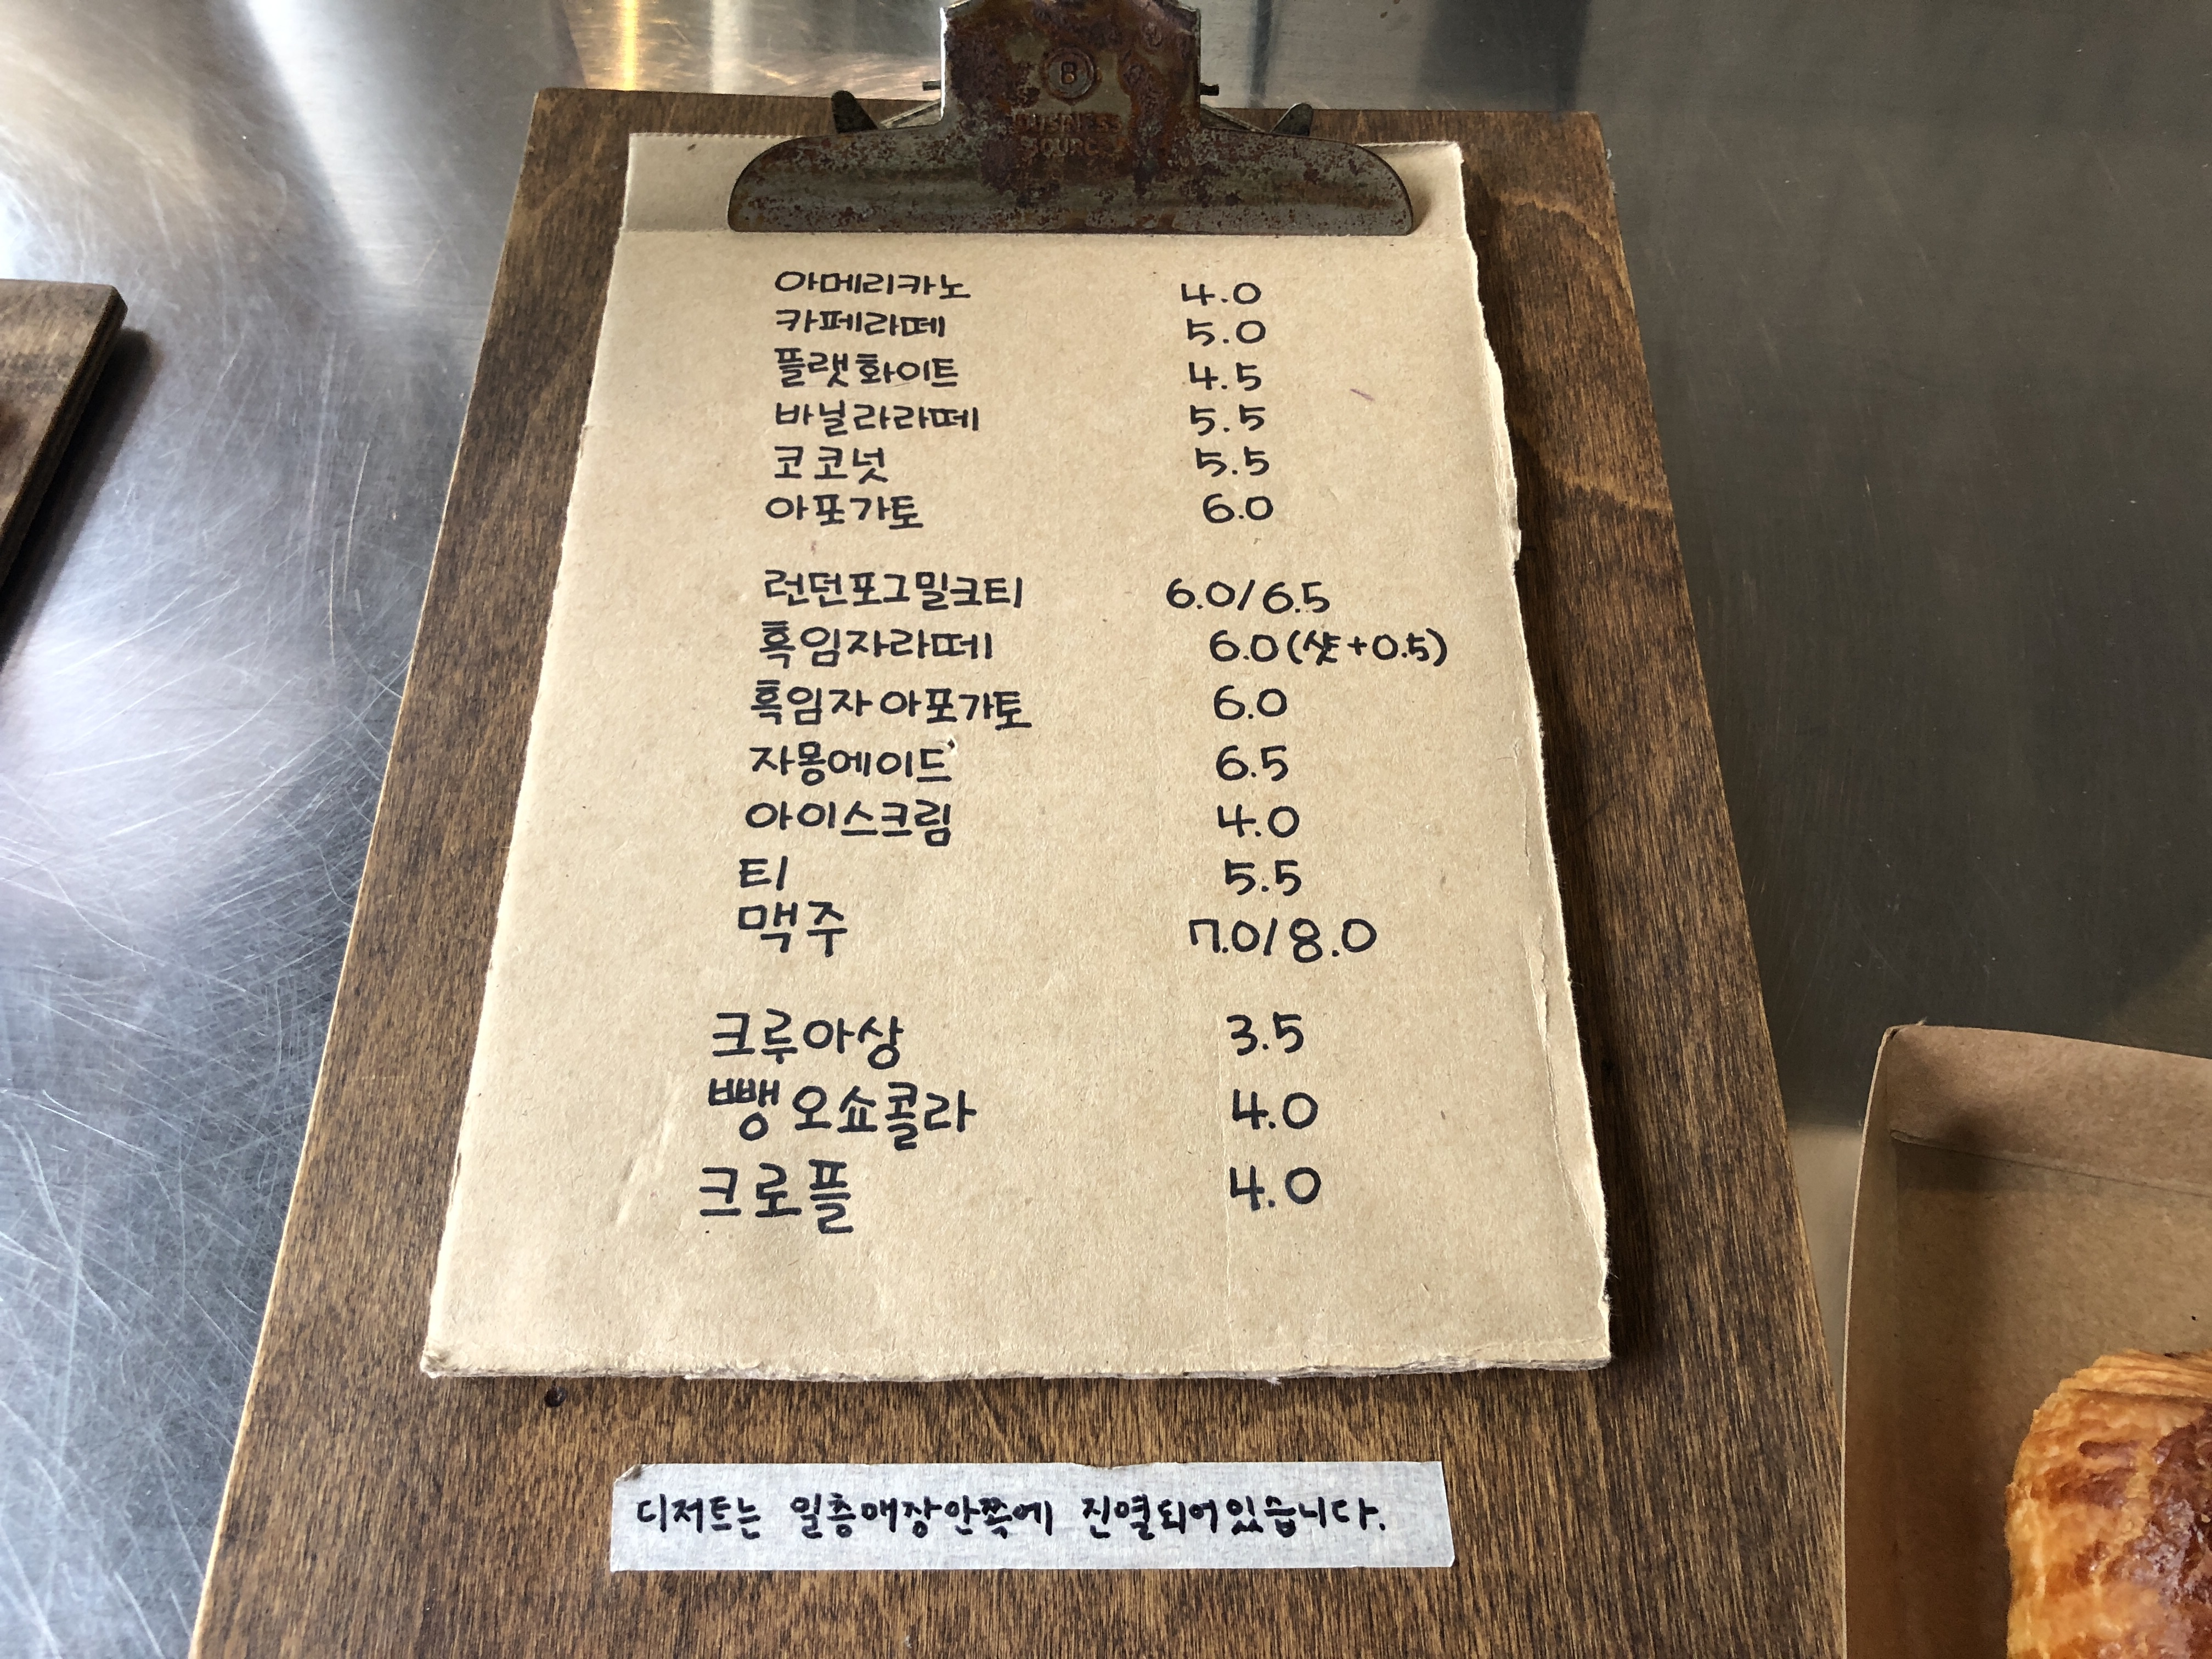 B
BUSINESS
SOURCE
아메리카노 4.0
카페라떼 5.0
플랫화이트 4.5
바닐라라떼 5.5
코코넛 5.5
아포가토 6.0
런던포그밀크티 6.0/6.5
흑임자라떼 6.0(샷+0.5)
흑임자 아포가토 6.0
자몽에이드 6.5
아이스크림 4.0
티 5.5
맥주 7.0/8.0
크루아상 3.5
뺑 오쇼콜라 4.0
크로플 4.0
디저트는 일층매장안쪽에 진열되어있습니다.